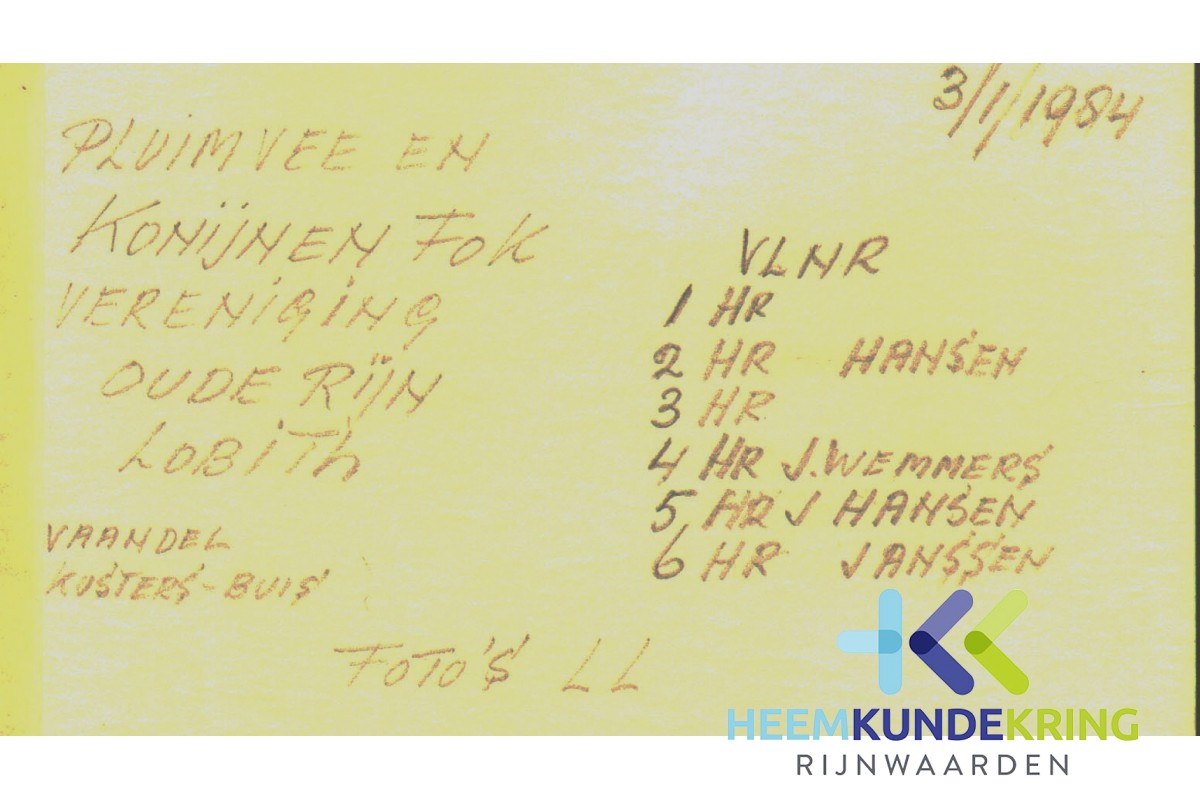 3/1/1984
PLUIMVEE EN
KONIJNEN FOK
VERENIGING
OUDE RIJN
LOBITH
VAANDEL
KUSTERS-BUIS
VLNR
1 HR
2 HR HANSEN
3 HR
4 HR J.WEMMERS
5 HR J HANSEN
6 HR JANSSEN
FOTO'S LL
HEEMKUNDEKRING
RIJNWAARDEN